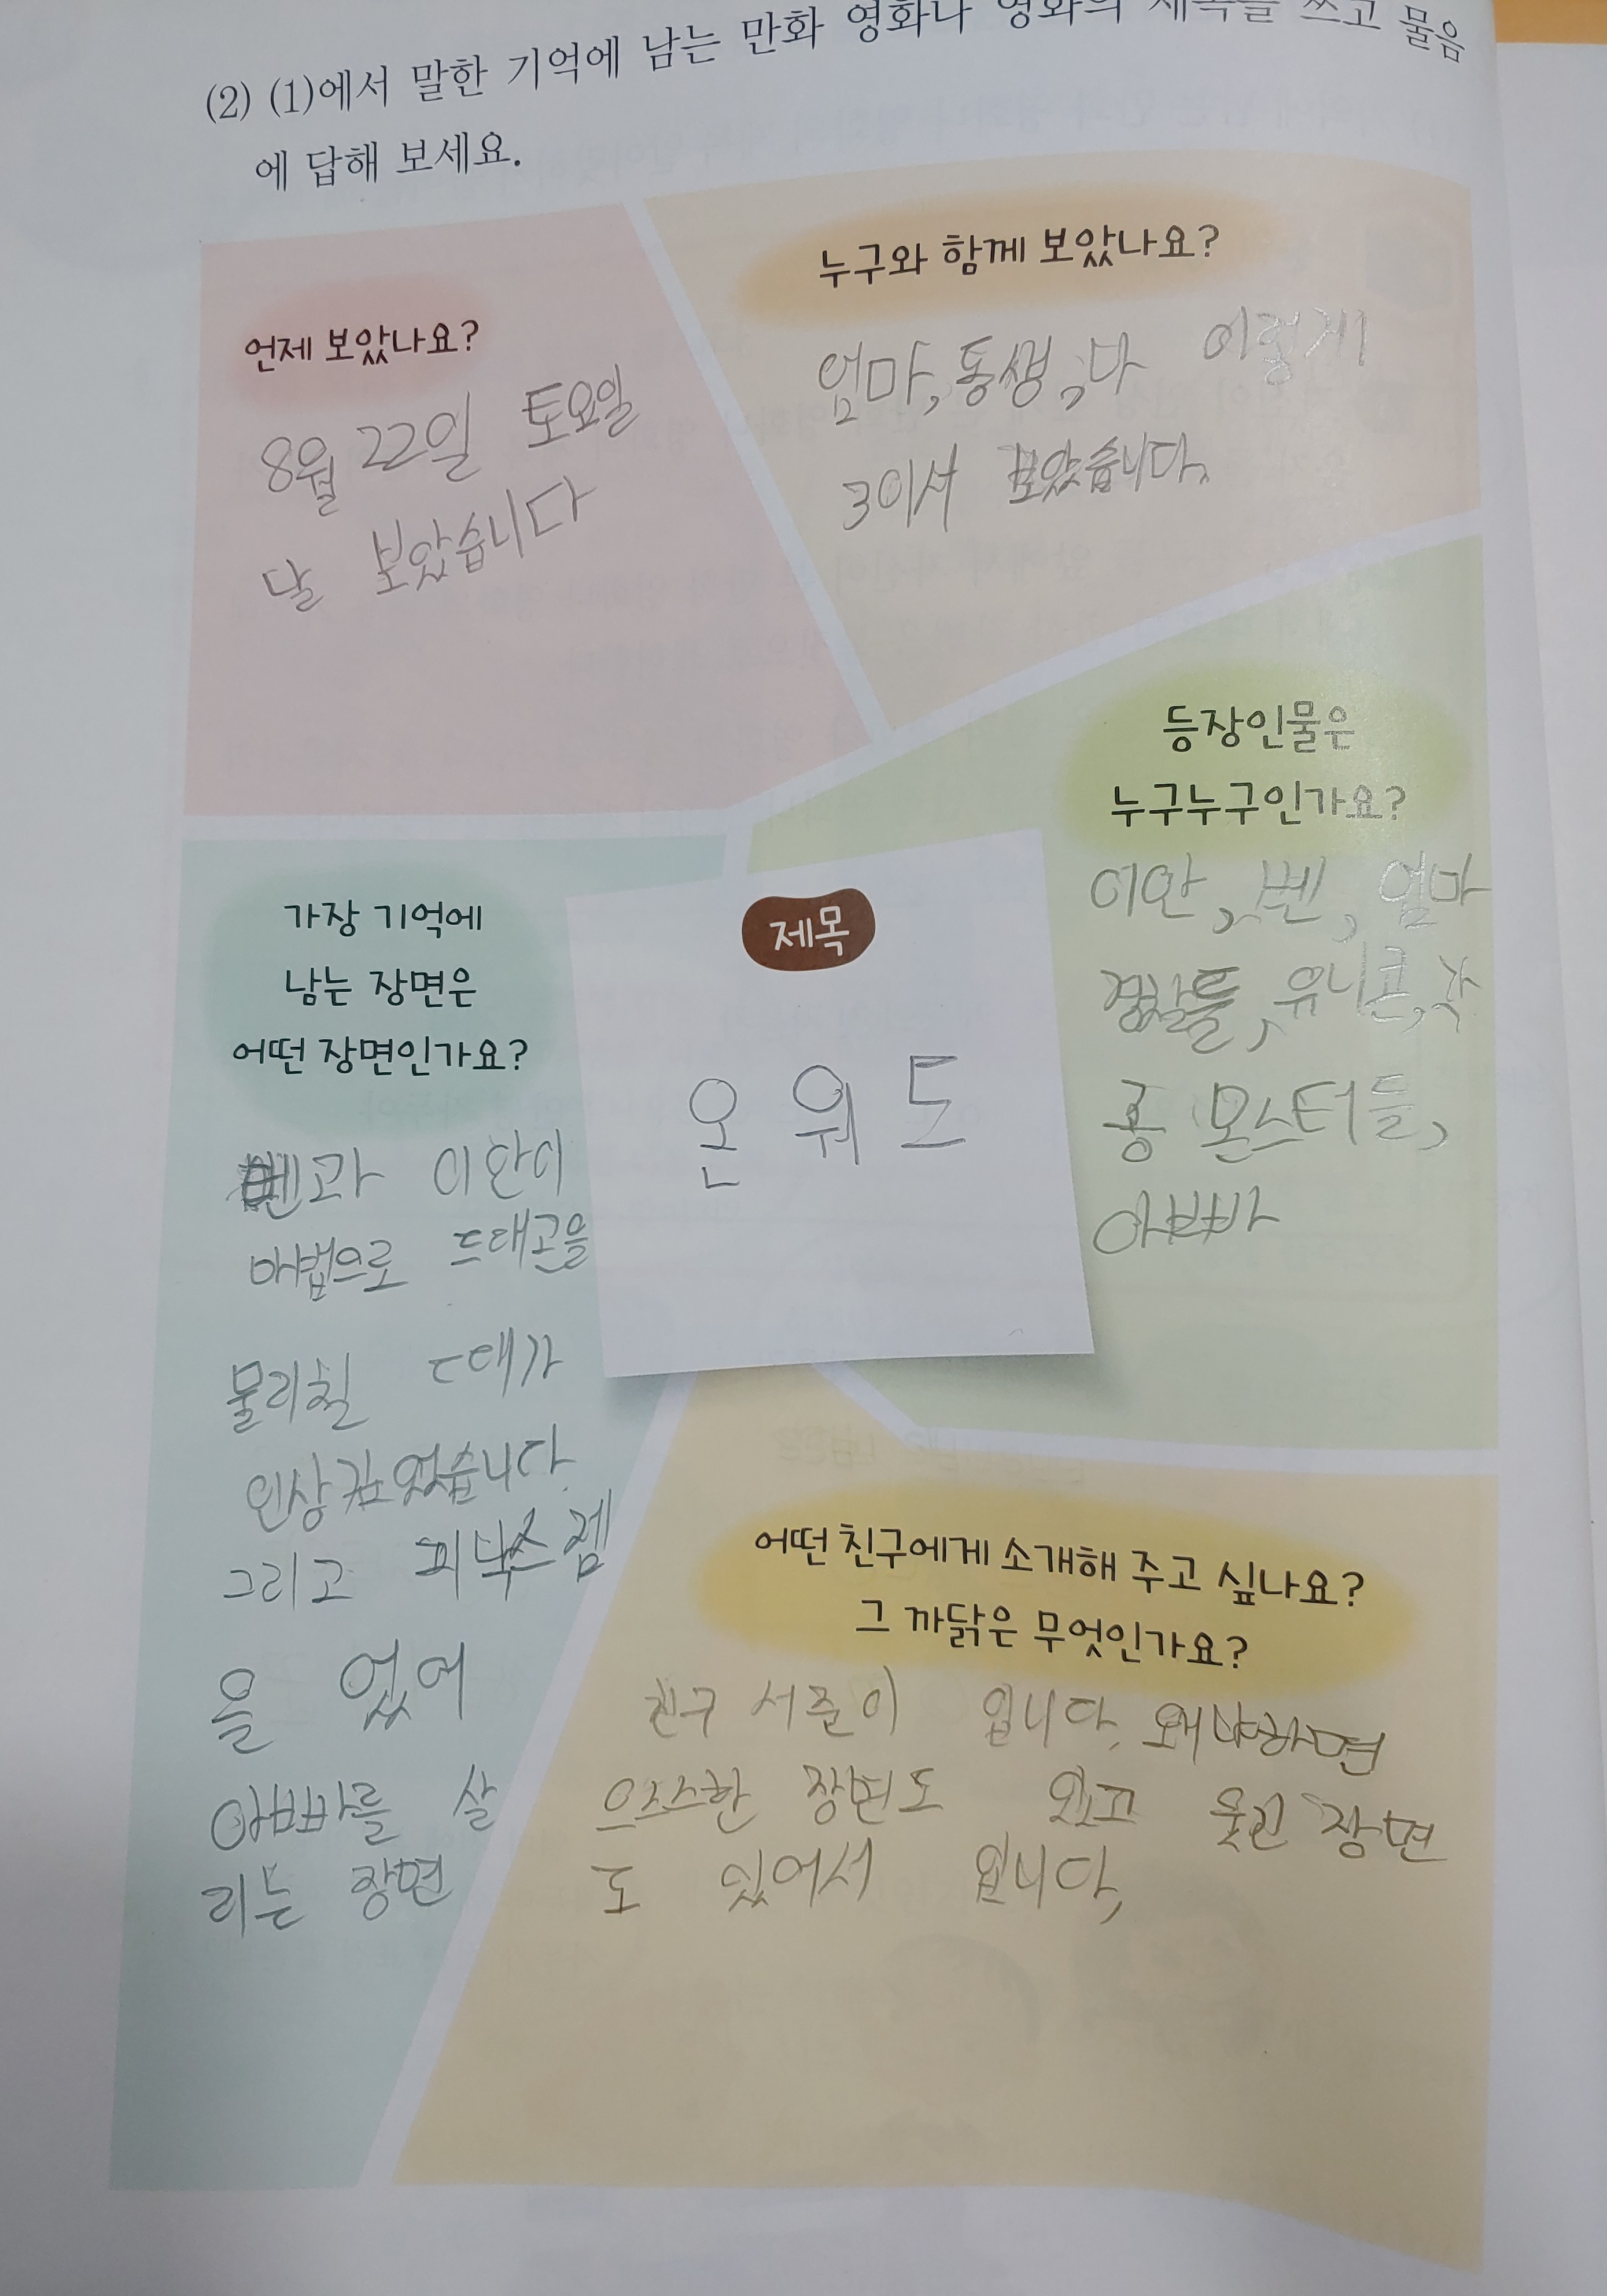 (2) (1)에서 말한 기억에 남는 만화 영화나 영화의 제목을 쓰고 물음
에 답해 보세요.
언제 보았나요?
8월 22일 토요일
날 보았습니다
누구와 함께 보았나요?
엄마, 동생, 나 이렇게
3이서 보았습니다.
등장인물은
누구누구인가요?
이안, 벤, 엄마
경찰들, 유니콘, 각
종 몬스터들,
아빠
제목
온워드
가장 기억에
남는 장면은
어떤 장면인가요?
벤과 이안이
마법으로 드래곤을
물리칠 때가
인상깊었습니다.
그리고 피닉스젬
을 었어
아빠를 살
리는 장면
어떤 친구에게 소개해 주고 싶나요?
그 까닭은 무엇인가요?
친구 서준이 입니다. 왜냐하면
으스스한 장면도 있고 웃긴 장면
도 있어서 입니다,